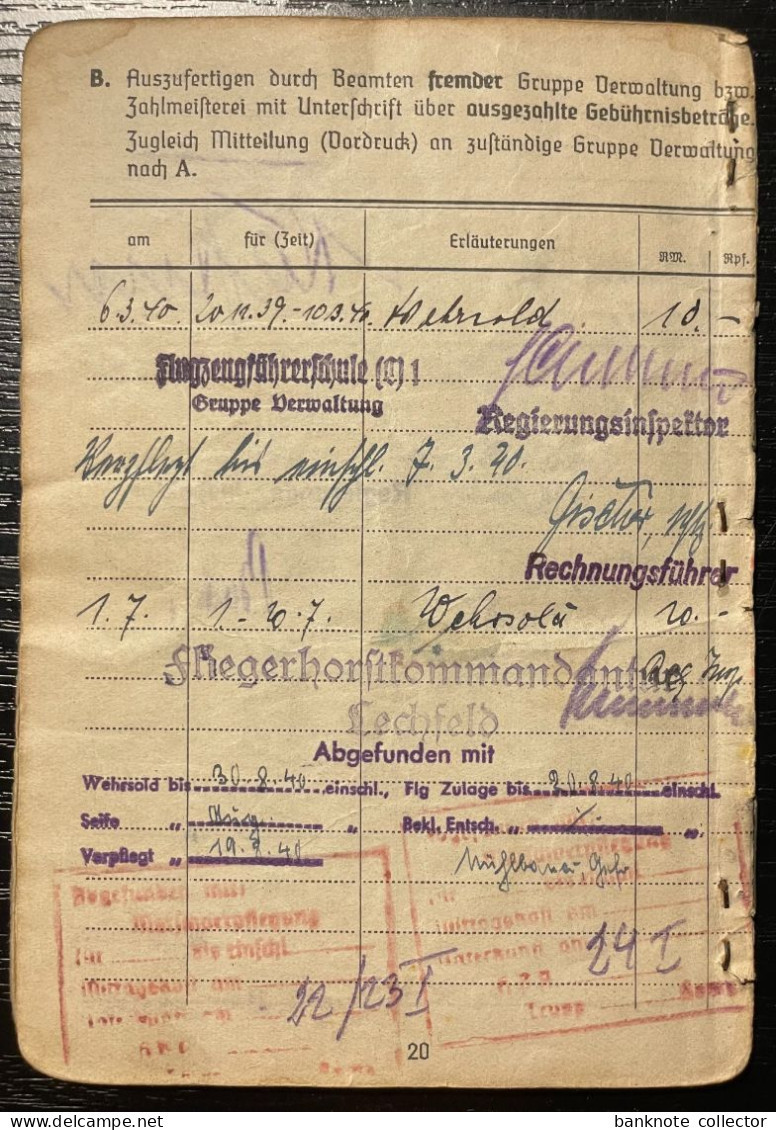 B. Auszufertigen durch Beamten fremder Gruppe Verwaltung bzw.
Zahlmeisterei mit Unterschrift über ausgezahlte Gebührnisbeträge.
Zugleich Mitteilung (Vordruck) an zuständige Gruppe Verwaltung
nach A.
am für (Zeit) Erläuterungen RM. Rpf.
6.3.40. 20.11.39.-10.3.40. Wehrsold 10. -
Flugzeugführerschule (C) 1
Gruppe Verwaltung
Regierungsinspektor
Verpflegt bis einschl. 7.3.40.
Rechnungsführer
1.7. 1-10.7. Wehrsold 10.-
Fliegerhorstkommandantur
Lechfeld
Reg. Insp.
Abgefunden mit
Wehrsold bis 30.8.40 einschl., Flg Zulage bis 20.8.40 einschl.
Seife " " Bekl. Entsch. " "
Verpflegt " 19.7.40
Abgefunden mit
Marschverpflegung
für bis einschl
Mittagskost am
für
Mittagskost am
24 I
22/23 I
20
banknote collector